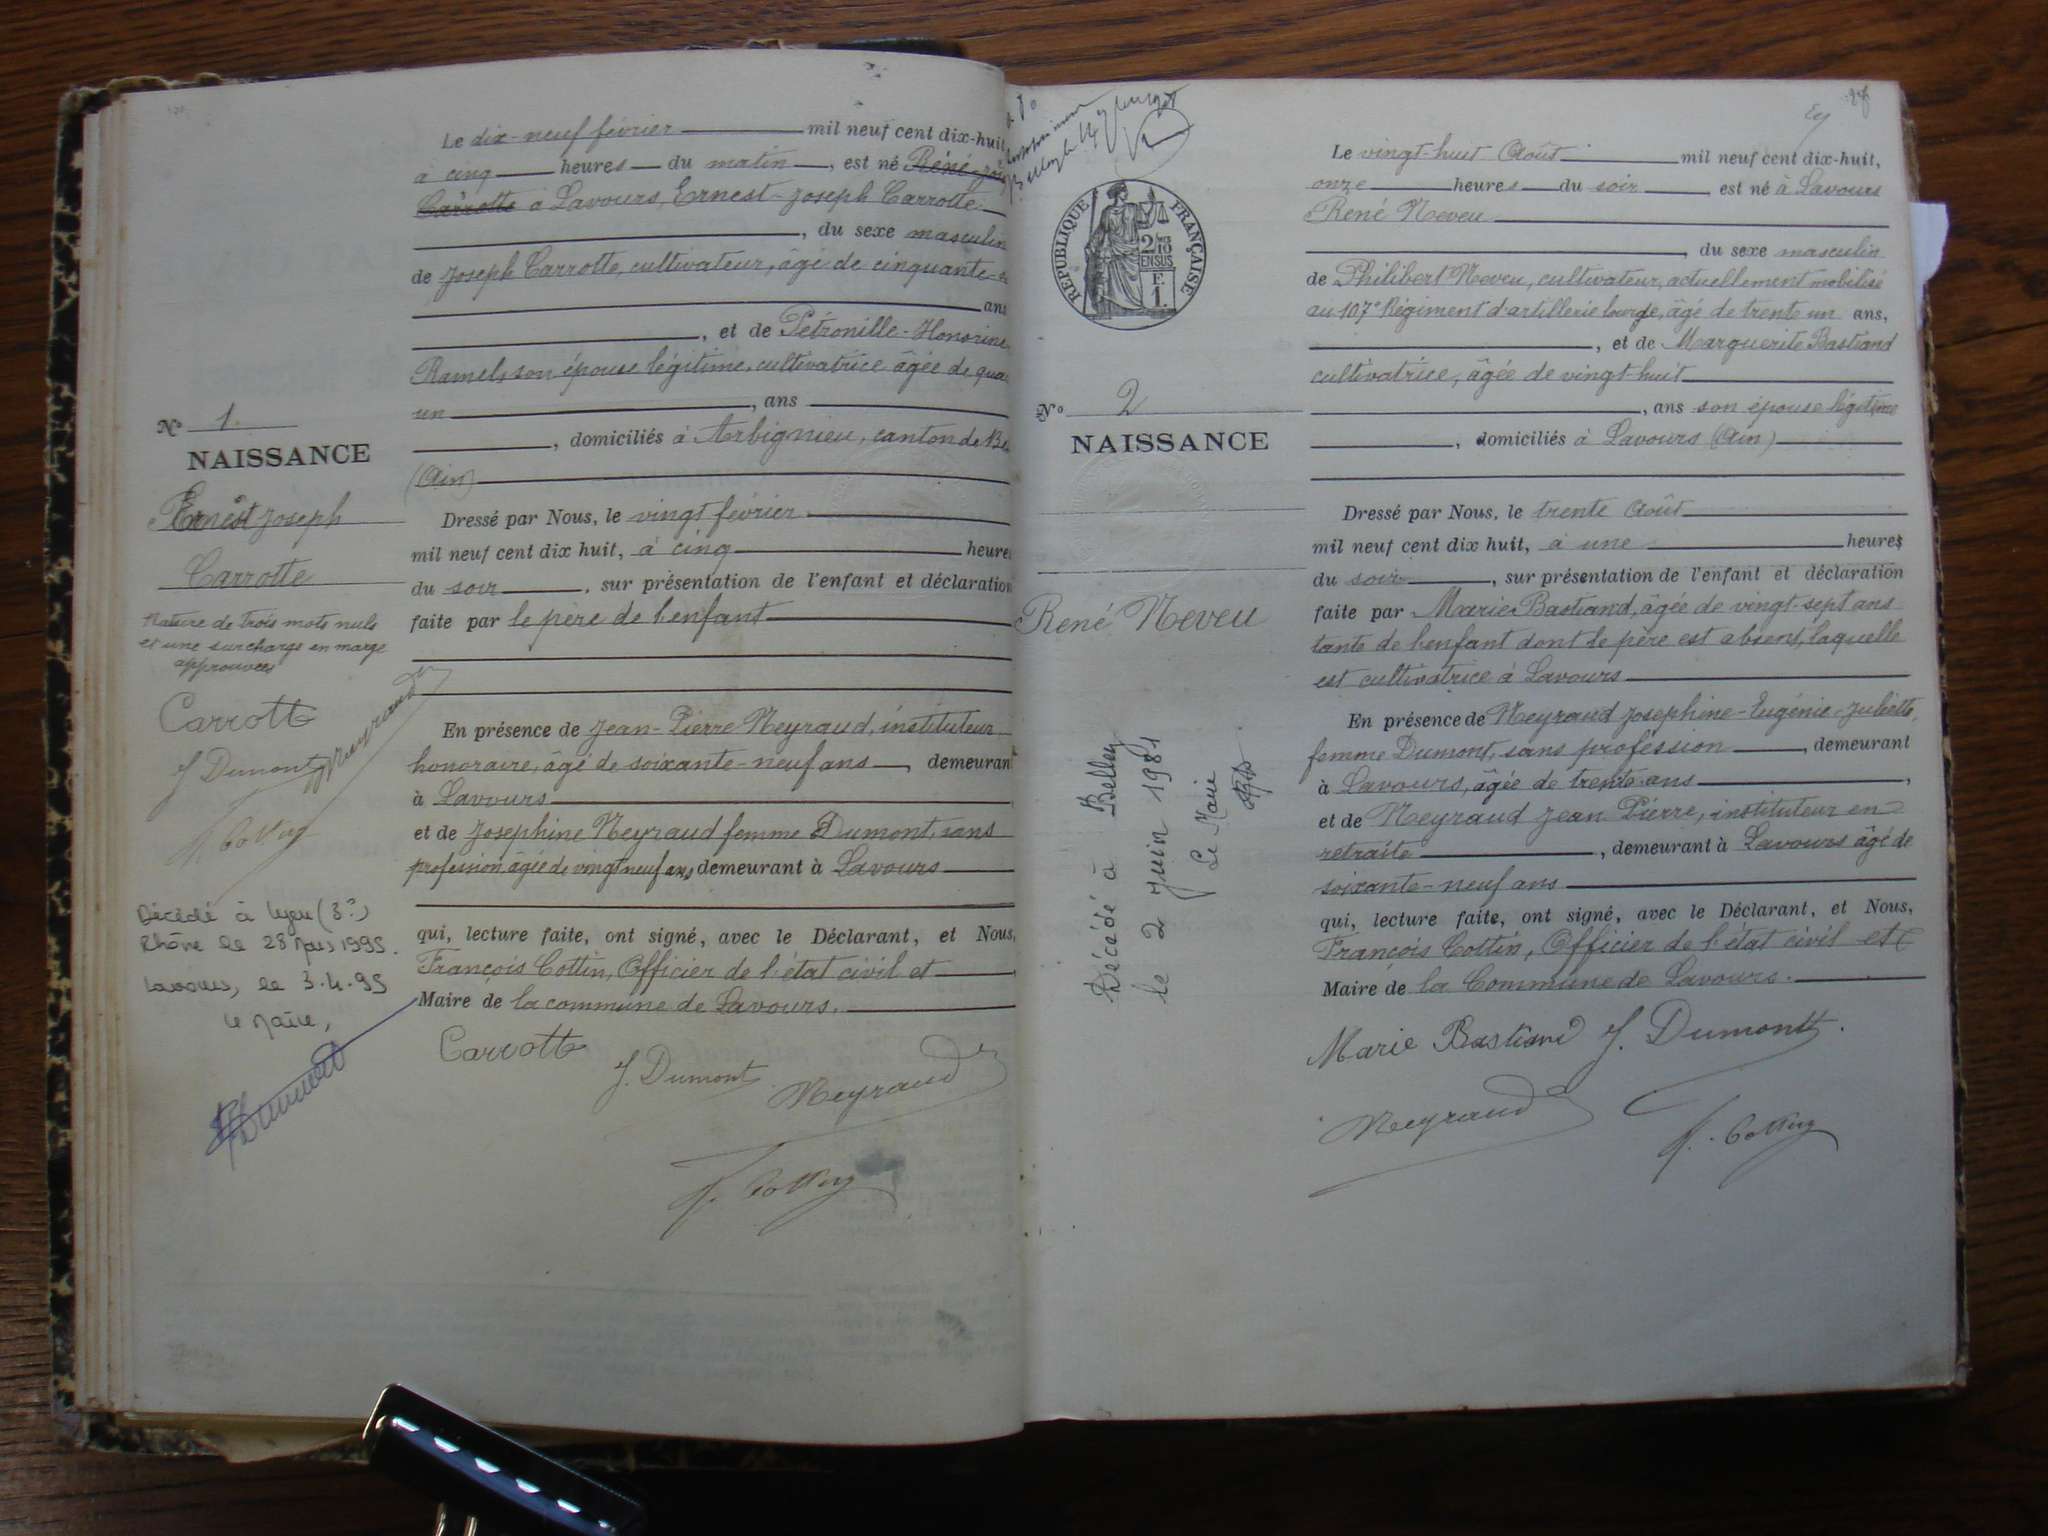 Le dix-neuf février mil neuf cent dix-huit
à cinq heures du matin, est né René-
Carrotte à Lavours, Ernest-Joseph Carrotte.
, du sexe masculin
de Joseph Carrotte, cultivateur, âgé de cinquante-
ans
, et de Pétronille-Honorine
Ramel, son épouse légitime, cultivatrice âgée de qua
un, ans
, domiciliés à Arbignieu, canton de Be
(Ain)
Dressé par Nous, le vingt février
mil neuf cent dix huit, à cinq heures
du soir, sur présentation de l'enfant et déclaration
faite par le père de l'enfant
En présence de Jean-Pierre Neyraud, instituteur
honoraire, âgé de soixante-neuf ans, demeurant
à Lavours
et de Josephine Neyraud femme Dumont, sans
profession âgée de vingt neuf ans, demeurant à Lavours
qui, lecture faite, ont signé, avec le Déclarant, et Nous,
François Cottin, Officier de l'état civil et
Maire de la commune de Lavours.
Carrotte
J. Dumont
Neyraud
F. Cottin
N° 1.
NAISSANCE
Ernest Joseph
Carrotte
Rature de trois mots nuls
et une surcharge en marge
approuvées
Carrotte
J Dumont Neyraud
F. Cottin
Décédé à Lyon (3°)
Rhône le 28 Mars 1995.
Lavours, le 3.4.95
Le Maire,
RÉPUBLIQUE FRANÇAISE
2 10
EN SUS
F.
1.
N° 2
NAISSANCE
René Neveu
Décédé à Belley
le 2 Juin 1981
Le Maire
Le vingt-huit Août mil neuf cent dix-huit,
onze heures du soir, est né à Lavours
René Neveu
, du sexe masculin
de Philibert Neveu, cultivateur, actuellement mobilisé
au 107e Régiment d'artillerie lourde, âgé de trente un ans,
, et de Marguerite Bastiand
cultivatrice, âgée de vingt-huit
, ans son épouse légitime
, domiciliés à Lavours (Ain)
Dressé par Nous, le trente Août
mil neuf cent dix huit, à une heures
du soir, sur présentation de l'enfant et déclaration
faite par Marie Bastiand, âgée de vingt-sept ans
tante de l'enfant dont le père est absent, laquelle
est cultivatrice à Lavours
En présence de Neyraud Josephine-Eugénie-Juliette,
femme Dumont, sans profession, demeurant
à Lavours, âgée de trente ans,
et de Neyraud Jean Pierre, instituteur en
retraite, demeurant à Lavours âgé de
soixante-neuf ans
qui, lecture faite, ont signé, avec le Déclarant, et Nous,
François Cottin, Officier de l'état civil et
Maire de la Commune de Lavours.
Marie Bastiand J. Dumont.
Neyraud
F. Cottin